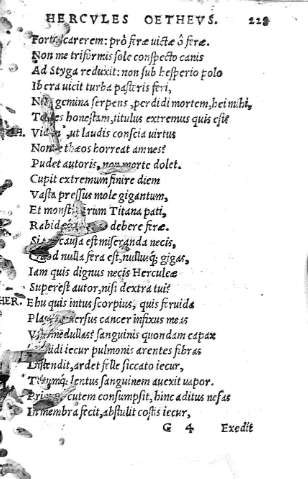 HERCVLES OETHEVS. 228
Forte carerem: prô feræ victæ ô feræ.
Non me triformis sole conspecto canis
Ad Styga reduxit: non sub hesperio polo
Ibera vicit turba pastoris feri,
gemina serpens, perdidi mortem, hei mihi,
honestam, titulus extremus quis est?
H. , ut laudis conscia virtus
horreat amnes?
Pudet autoris, non morte dolet.
Cupit extremum finire diem
Vasta pressus mole gigantum,
Et Titana pati,
debere feræ.
causa est miseranda necis,
nulla fera est, nullusq; gigas,
Iam quis dignus necis Herculeæ
Superest autor, nisi dextra tui?
HER. Eheu quis intus scorpius, quis feruida
versus cancer infixus meas
medullas? sanguinis quondam capax
iecur pulmonis arentes fibras
Distendit, ardet felle siccato iecur,
lentus sanguinem auexit vapor.
cutem consumpsit, hinc aditus nefas
In membra fecit, abstulit costis iecur,
G 4 Exedit